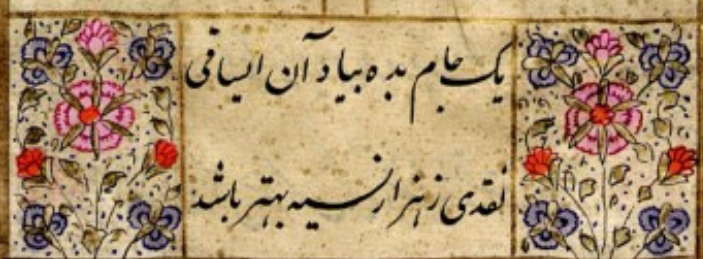 یک جام بده بیاد آن ایساقی
نقدی ز هزار نسیه بهتر باشد